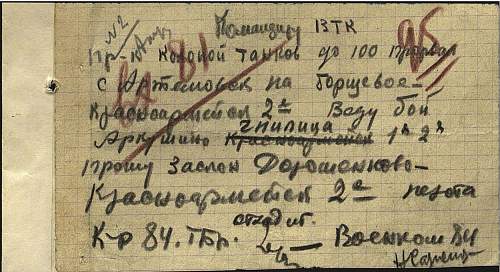 N2
Командиру ВТК
95
81
Пр-к колоной танков до 100 прорвал
с Артемовск на Борщевое-
Красноармейск 2й Веду бой
Гнилица
Аркушино Красноармейск 1й 2й
Прошу заслон Дорошенково-
Красноармейск 2й пехота
отходит.
К-р 84. ТБр. — Военком 84